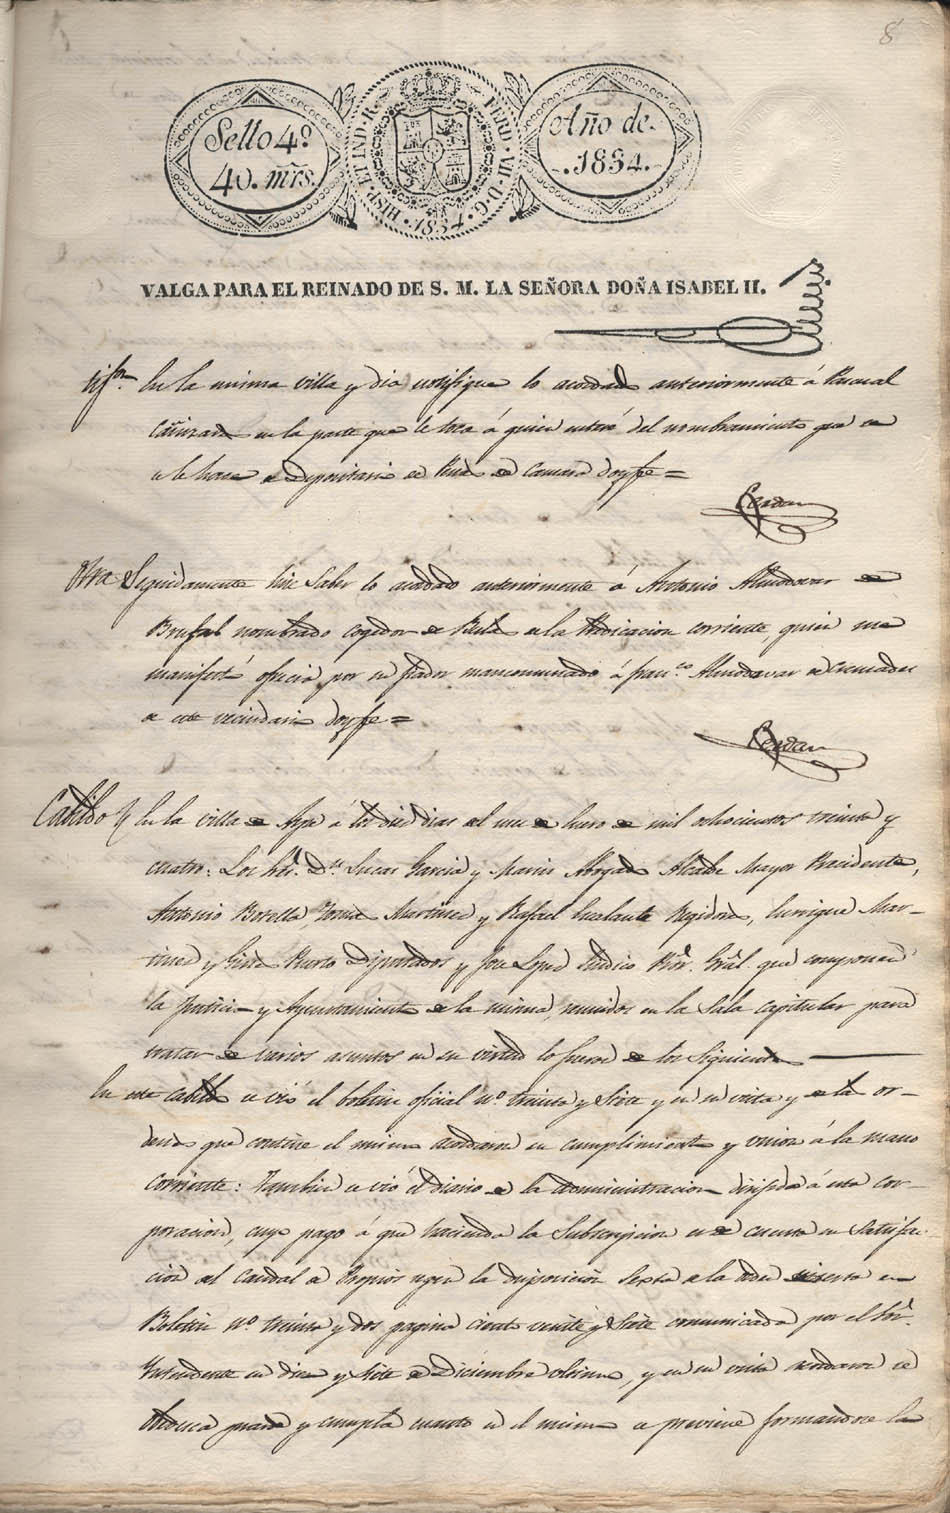 8
Sello 4º
40. mrs.
HISP. ET IND. R. FERD. VII. D. G.
1834
Año de
1834.
VALGA PARA EL REINADO DE S. M. LA SEÑORA DOÑA ISABEL II.
En la misma villa y dia notifique lo acordado anteriormente á Pascual
Cañizares en la parte que le toca á quien enteré del nombramiento que en
el se hace de Depositario de de Camara doy fe =
Cerdan
Otra Seguidamente hice saber lo acordado anteriormente á Antonio Almodovar de
Brufal nombrado cogedor de Bulas de la Predicacion corriente, quien me
manifestó ofrecia por su fiador mancomunado á Franco. Almodovar de Cremades
de este vecindario doy fe =
Cerdan
Cabildo En la villa de Aspe á los diez dias del mes de Enero de mil ochocientos treinta y
cuatro: Los Sres. Dn. Lucas Garcia y Alcalde Mayor Presidente,
Antonio Botella, Tomas Martinez y Rafael Regidores, Enrique Mar-
tinez y Ginés Puerto Diputados y José Lopez Sindico Pror. Gral. que componen
la Justicia y Ayuntamiento de la misma, reunidos en la Sala capitular para
tratar de varios asuntos en su virtud lo fueron de los siguientes
En este cabildo se vió el boletin oficial nº treinta y siete y en su vista y de las or-
denes que contiene el mismo acordaron su cumplimiento y union á la mano
corriente: Tambien se vió el diario de la administracion dirigido á esta cor-
poracion, cuyo pago á que haciendo la Subscripcion se de cuenta su satisfac-
cion del caudal de Propios segun la disposicion sexta de la orden inserta en
Boletin nº treinta y dos pagina ciento veinte y siete comunicada por el Sor.
Intendente en diez y siete de Diciembre ultimo, y en su vista acordaron se
obedezca guarde y cumpla cuanto en el mismo se previene formandose la